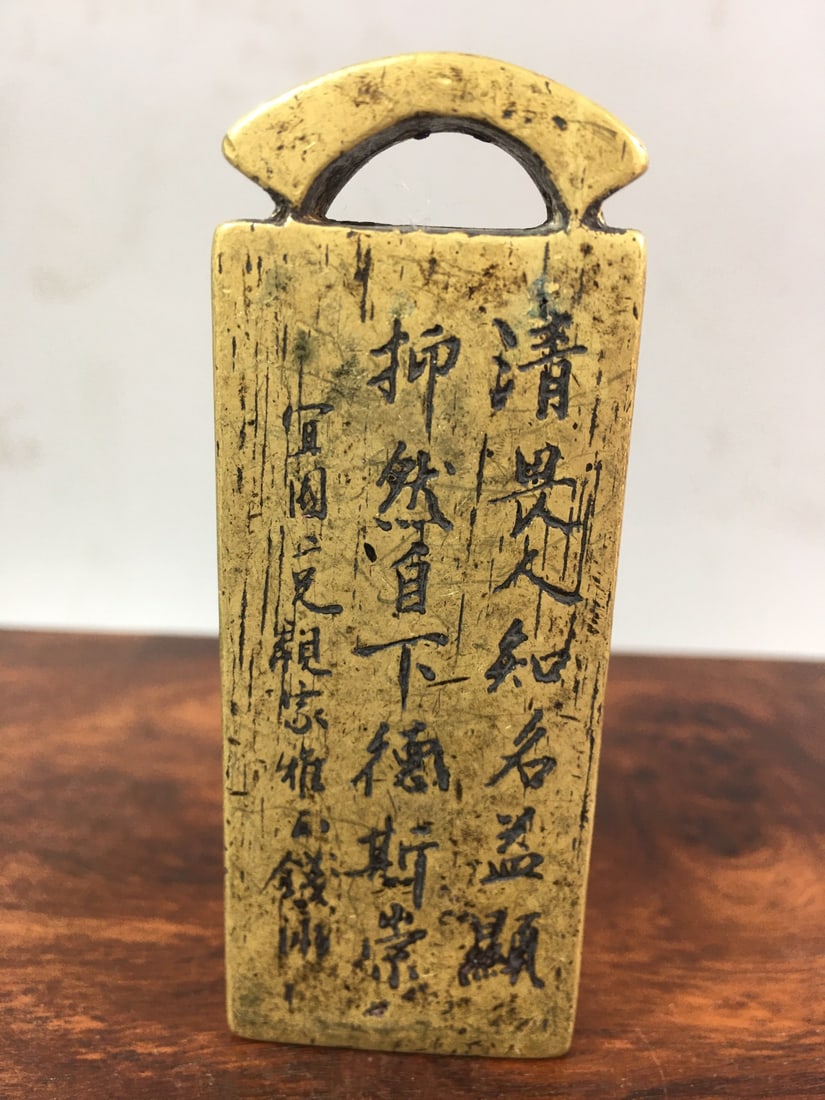 清畏人知名益顯
抑然自下德斯崇
宜園二兄親家雅正錢泳